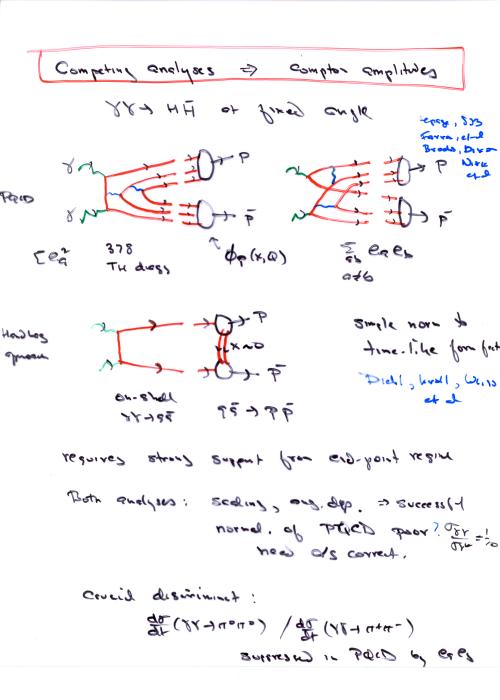 Competing analyses ⇒ Compton amplitudes
γγ → HH̄ at fixed angle
Lepage, SJB
Farrar, et al
Brodsky, Dixon
Nizic
et al
γ
P
P
PQCD
γ
P̄
P̄
Σ e_q²
378
TH diags
φ_p(x,Q)
Σ e_a e_b
ab
a≠b
Handbag
P
x~0
P̄
simple norm to
time-like form fact
Diehl, Kroll, Weiss
et al
on-shell
γγ → qq̄
qq̄ → PP̄
requires strong support from end-point regime
Both analyses: scaling, ang. dep. ⇒ successful
normal. of PQCD poor?
need α/s correct.
Crucial discriminant:
dσ/dt (γγ → π⁰π⁰) / dσ/dt (γγ → π⁺π⁻)
suppressed in PQCD by